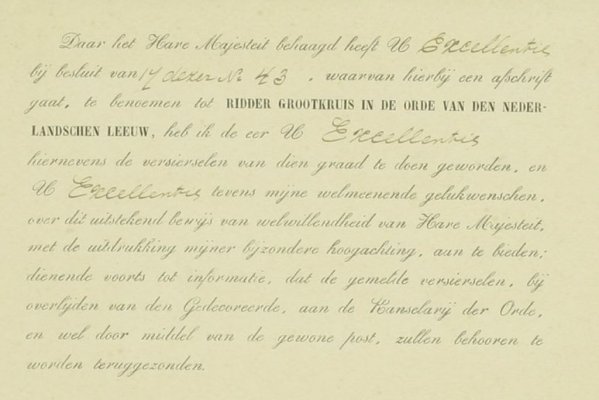 Daar het Hare Majesteit behaagd heeft U Excellentie
bij besluit van 17 dezer No 43, waarvan hierbij een afschrift
gaat, te benoemen tot RIDDER GROOTKRUIS IN DE ORDE VAN DEN NEDER-
LANDSCHEN LEEUW, heb ik de eer U Excellentie
hiernevens de versierselen van dien graad te doen geworden, en
U Excellentie tevens mijne welmeenende gelukwenschen,
over dit uitstekend bewijs van welwillendheid van Hare Majesteit,
met de uitdrukking mijner bijzondere hoogachting, aan te bieden;
dienende voorts tot informatie, dat de gemelde versierselen, bij
overlijden van den Gedecoreerde, aan de Kanselarij der Orde,
en wel door middel van de gewone post, zullen behooren te
worden teruggezonden.